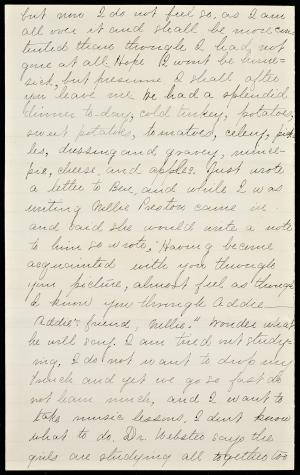 but now I do not feel so, as I am
all over it and shall be more con
tented than though I had not
gone at all. Hope I won't be home=
sick, but presume I shall after
you leave me. We had a splendid
dinner to-day, cold turkey, potatoes,
sweet potatoes, tomatoes, celery, pick
les, dressing and gravey, mince-
pie, cheese, and apples. Just wrote
a letter to Ben, and while I was
writing Nellie Preston came in
and said she would write a note
to him so wrote, "Having become
acquainted with you through
your picture, almost feel as though
I know you through Addie
Addie's friend, Nellie." Wonder what
he will say. I am tired out study-
ing, I do not want to drop any
French and yet we go so fast do
not learn much, and I want to
take music lessons. I don't know
what to do. Dr. Webster says the
girls are studying all together too